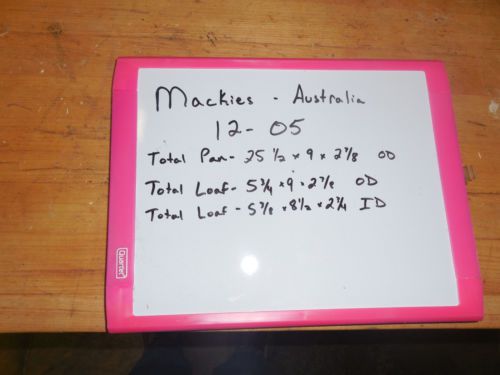 Mackies - Australia
12-05
Total Pan - 25 1/2 x 9 x 2 7/8 OD
Total Loaf - 5 3/4 x 9 x 2 7/8 OD
Total Loaf - 5 3/8 x 8 1/2 x 2 3/4 ID
Quartet